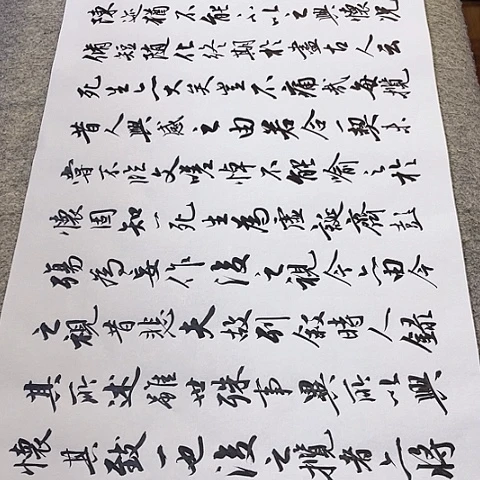 陳迹猶不能不以之興懷況
脩短隨化終期於盡古人云
死生亦大矣豈不痛哉每攬
昔人興感之由若合一契未
嘗不臨文嗟悼不能喻之於
懷固知一死生為虛誕齊彭
殤為妄作後之視今亦由今
之視昔悲夫故列敘時人錄
其所述雖世殊事異所以興
懷其致一也後之攬者亦將